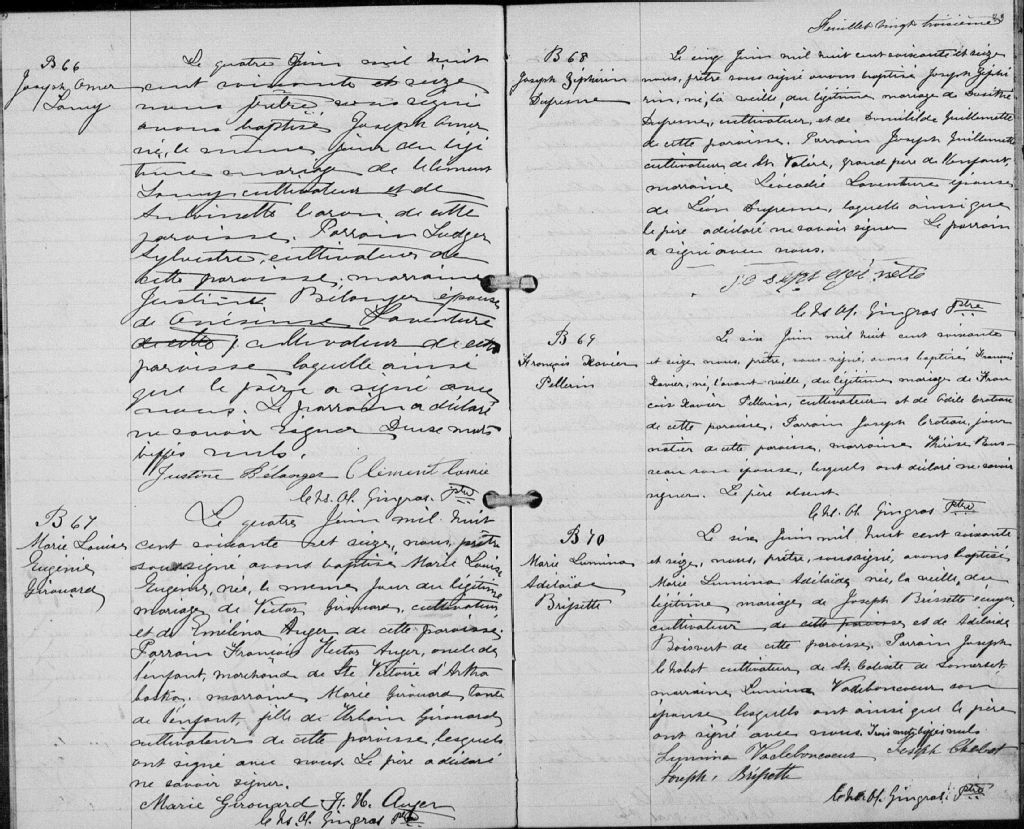 B 66
Joseph Omer
Lamy
Le quatre Juin mil huit
cent soixante et seize
nous prêtre soussigné
avons baptisé Joseph Omer
né, le même jour du légi
time mariage de Clément
Lamy cultivateur et de
Antoinette Caron de cette
paroisse. Parrain Ludger
Sylvestre, cultivateur de
cette paroisse, marraine
Justine Bélanger épouse
de Onésime Laventure
de cette, cultivateur de cette
paroisse laquelle ainsi
que le père a signé avec
nous. Le parrain a déclaré
ne savoir signer Deuse mots
biffés nuls.
Justine Bélanger Clément Lamie
Chs. Ol. Gingras. Ptre
B 67
Marie Louise
Eugénie
Girouard
Le quatre Juin mil huit
cent soixante et seize, nous, prêtre
soussigné avons baptisé Marie Louise
Eugénie, née, le même jour du légitime
mariage de Victor Girouard, cultivateur
et de Emélina Auger de cette paroisse.
Parrain François Hector Auger, oncle de
l'enfant, marchand de Ste Victoire d'Artha
baska, marraine Marie Girouard tante
de l'enfant, fille de Urbain Girouard
cultivateur de cette paroisse, lesquels
ont signé avec nous. Le père a déclaré
ne savoir signer.
Marie Girouard F. H. Auger
Chs. Ol. Gingras Ptre
Feuillet vingt troisième 23
B 68
Joseph Zéphirin
Dupresne
Le cinq Juin mil huit cent soixante et seize
nous, prêtre sous signé avons baptisé Joseph Zéphi
rin, né, la veille, du légitime mariage de Dosithé
Dupresne, cultivateur, et de Domitilde Guillemette
de cette paroisse. Parrain Joseph Guillemette
cultivateur de St. Valère, grand père de l'enfant,
marraine Léocadie Laventure épouse
de Léon Dupresne, laquelle ainsi que
le père a déclaré ne savoir signer Le parrain
a signé avec nous.
Chs. Ol. Gingras Ptre
B 69
François Xavier
Pellerin
Le six Juin mil huit cent soixante
et seize nous, prêtre, sous-signé, avons baptisé François
Xavier, né, l'avant-veille, du légitime mariage de Fran
cois Xavier Pellerin, cultivateur et de Odile Croteau
de cette paroisse. Parrain Joseph Croteau, jour
nalier de cette paroisse, marraine Thérèse Rous
seau son épouse, lesquels ont déclaré ne savoir
signer. Le père absent.
Chs. Ol. Gingras Ptre
B 70
Marie Lumina
Adelaïde
Brissette
Le six Juin mil huit cent soixante
et seize, nous, prêtre, soussigné, avons baptisé
Marie Lumina Adélaïde née, la veille, du
légitime mariage de Joseph Brissette écuyer,
cultivateur de cette paroisse et de Adélaïde
Boisvert de cette paroisse. Parrain Joseph
Chabot cultivateur, de St. Calixte de Somerset,
marraine Lumina Vadeboncoeur son
épouse lesquels ont ainsi que le père
ont signé avec nous. Trois mots biffés nuls
Lumina Vadeboncoeur Joseph Chabot
Joseph Brissette
Chs. Ol. Gingras. Ptre